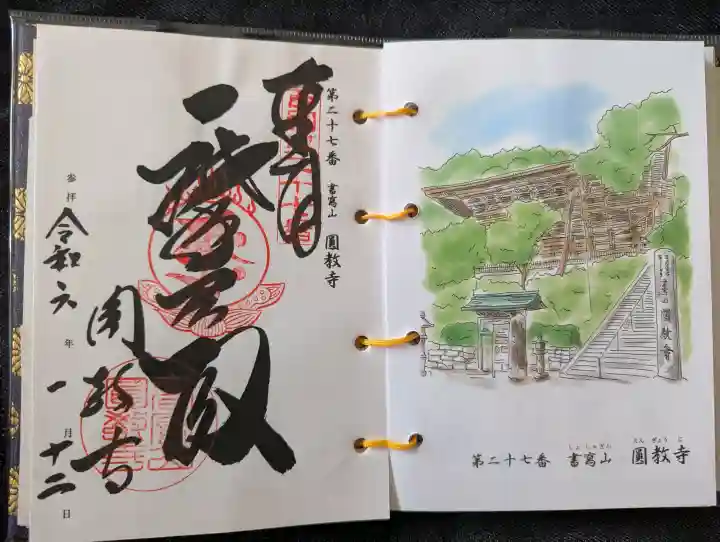 第二十七番 書寫山 圓教寺
奉拝
摩尼殿
圓教寺
参拝 令和六年一月十二日
圓教寺
しょしゃざん えんぎょうじ
第二十七番 書寫山 圓教寺